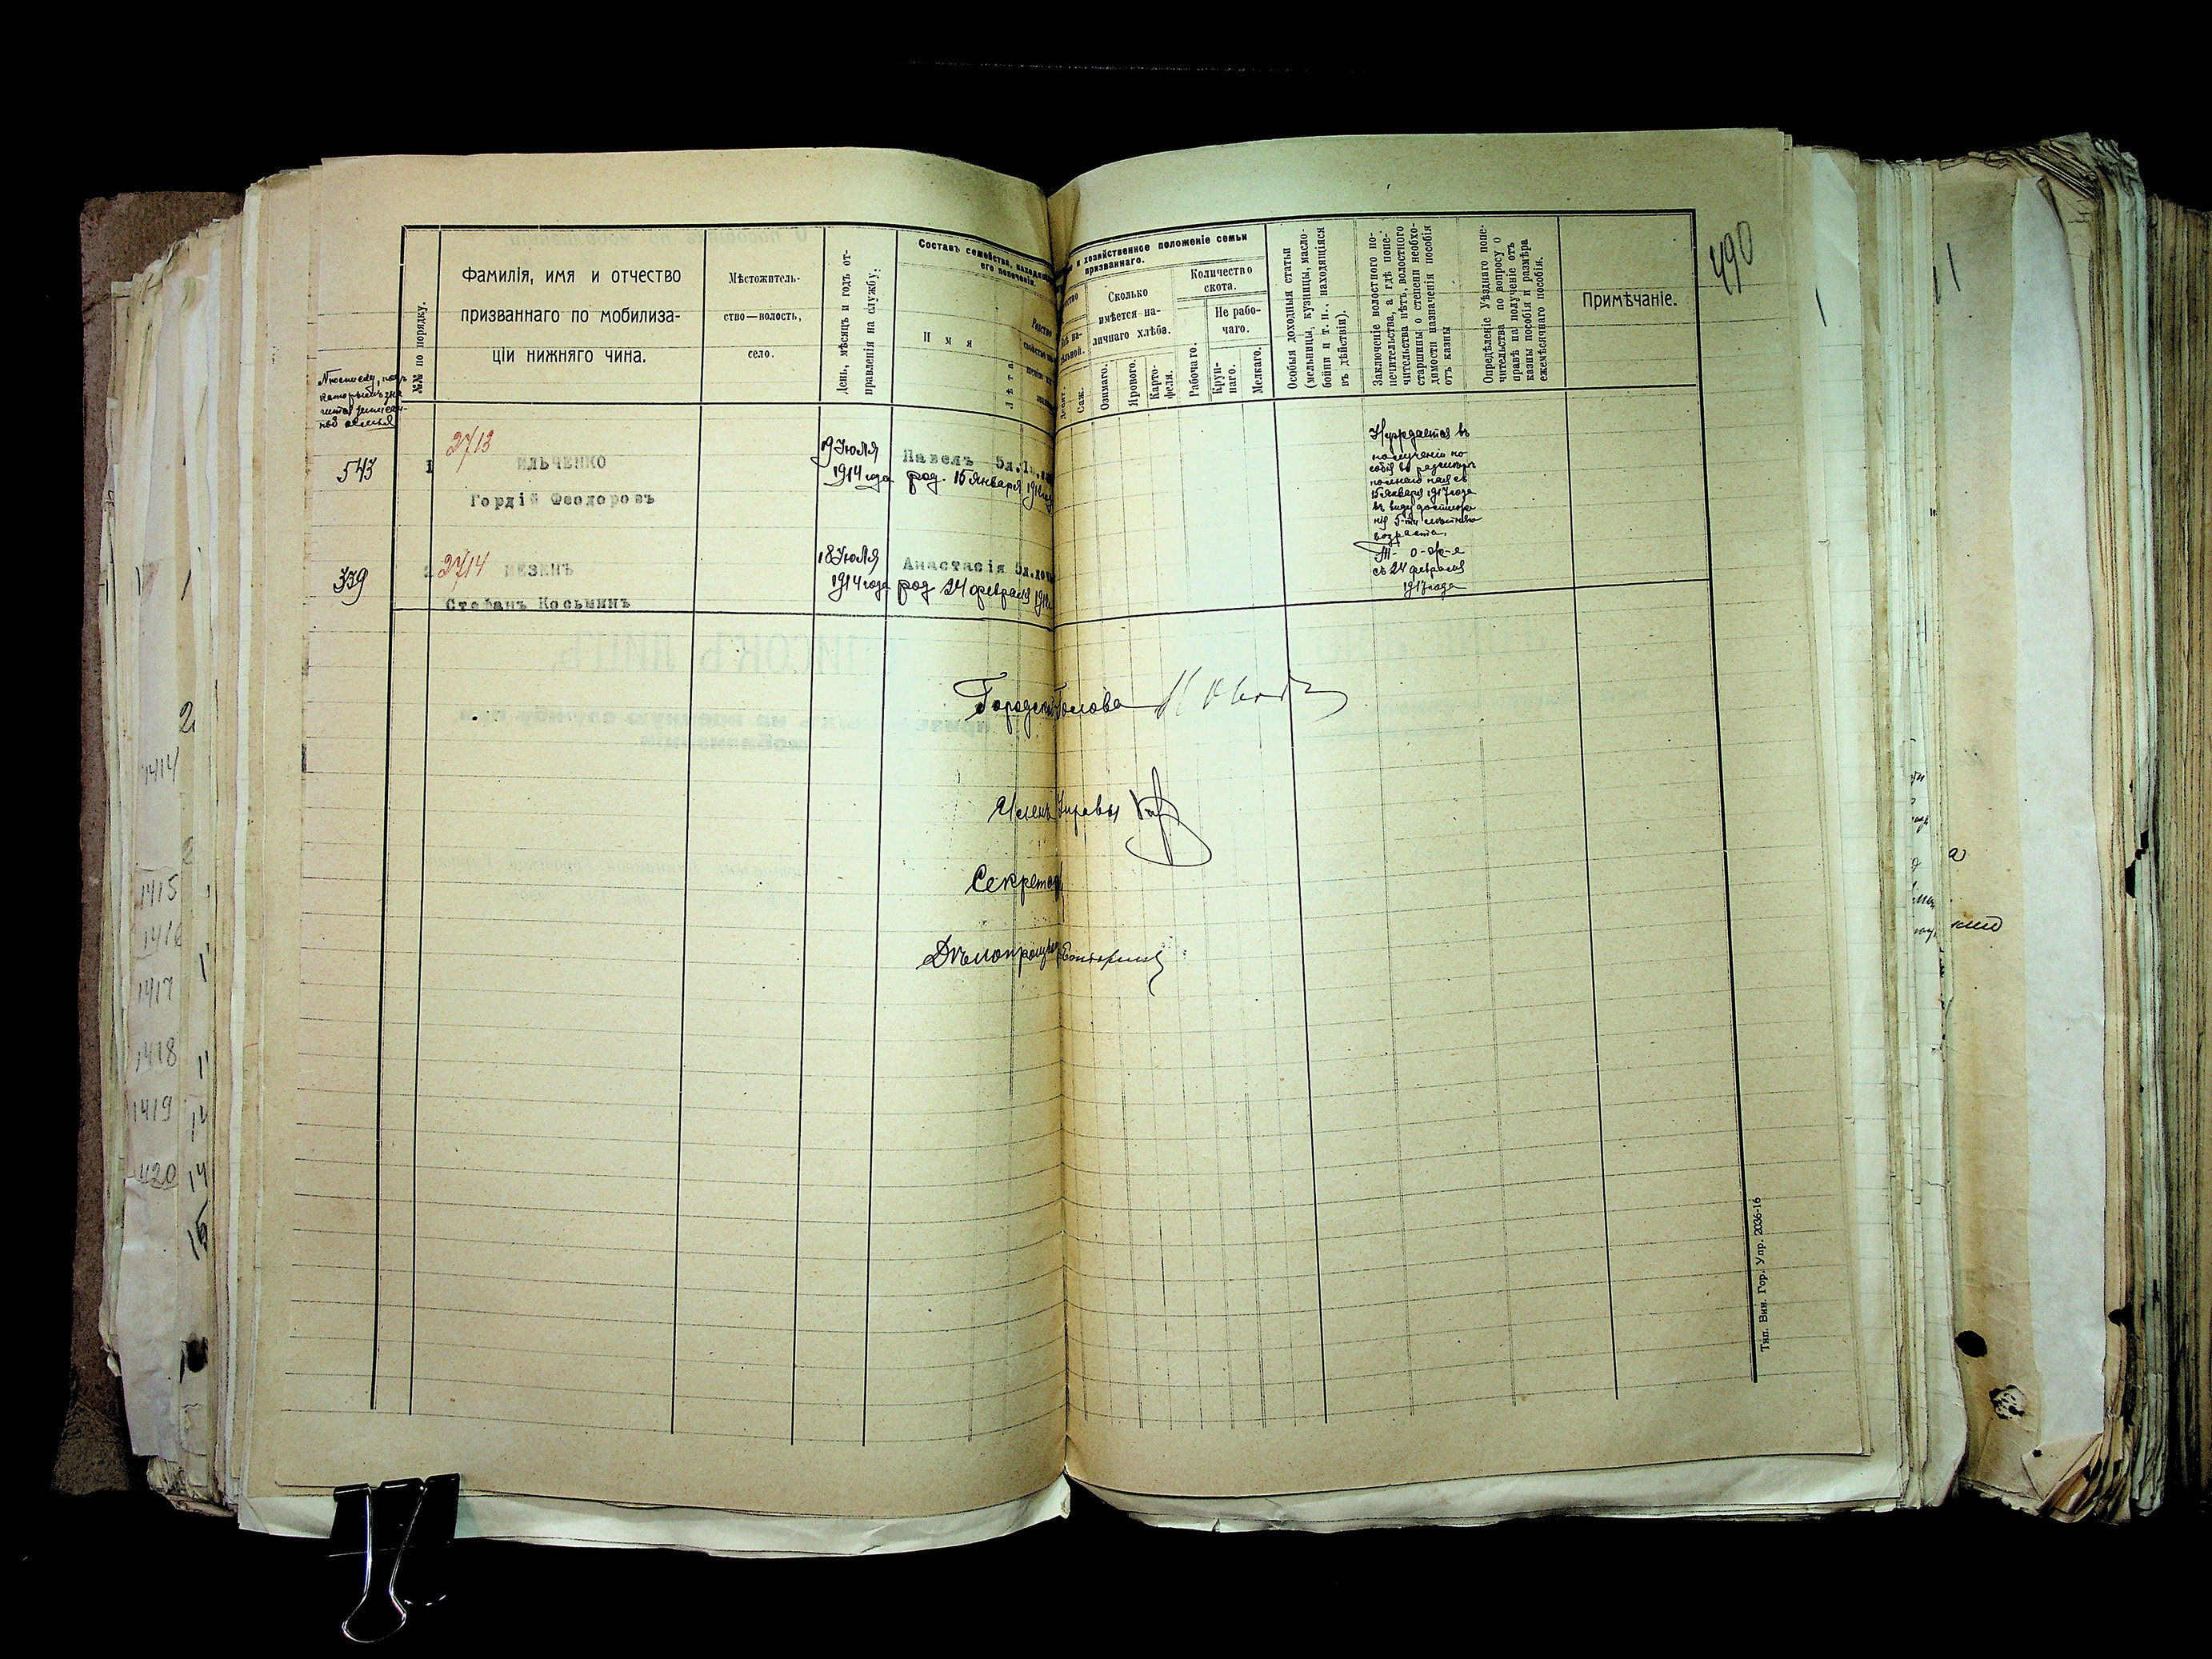 490
№№ по порядку.
Фамилія, имя и отчество
призваннаго по мобилиза-
ціи нижняго чина.
Мѣстожитель-
ство—волость,
село.
День, мѣсяцъ и годъ от-
правленія на службу.
Составъ семейства,
его попеченіи.
И м я
Лѣта
и хозяйственное положеніе семьи
призваннаго.
Десят.
Саж.
Сколько
имѣется на-
личнаго хлѣба.
Озимаго.
Ярового.
Карто-
феля.
Количество
скота.
Рабочаго.
Не рабо-
чаго.
Круп-
наго.
Мелкаго.
Особыя доходныя статьи
(мельницы, кузницы, масло-
бойни и т. п., находящіяся
въ дѣйствіи).
Заключеніе волостного по-
печительства, а гдѣ попе-
чительства нѣтъ, волостного
старшины о степени необхо-
димости назначенія пособія
отъ казны
Опредѣленіе Уѣзднаго попе-
чительства по вопросу о
правѣ на полученіе отъ
казны пособія и размѣра
ежемѣсячнаго пособія.
Примѣчаніе.
543
1
2713
ИЛЬЧЕНКО
Гордій Феодоровъ
19 Іюля
1914 года
Павелъ 5л.
род. 15 Января
Нуждается въ
полученіи по
собія въ размѣрѣ
15 Января 1917 года
въ виду достиже
нія 5-ти
возраста.
339
2714
Стефанъ Косьминъ
18 Іюля
1914 года
Анастасія 5л.
род 24 февраля
Т- о-ж-е
съ 24 февраля
1917 года
Голова
Членъ Управы
Секретарь
Тип. Вин. Гор. Упр. 2036-16
1414
1415
1416
1417
1418
1419
420